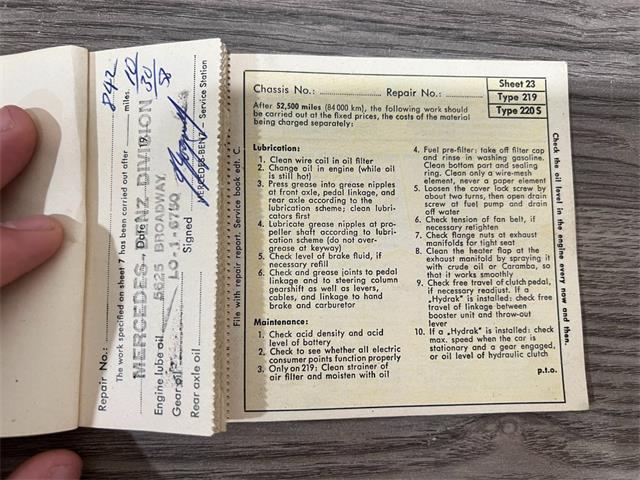 Repair No.:
842
The work specified on sheet 7 has been carried out after miles.
10
30
58
Date 19
MERCEDES-BENZ DIVISION
5625 BROADWAY
LO-1-6750
Engine lube oil
Gear oil
Signed
MERCEDES-BENZ – Service Station
Rear axle oil
File with repair report. Service book edt. C.
Chassis No.: Repair No.:
Sheet 23
Type 219
Type 220 S
After 52,500 miles (84 000 km), the following work should
be carried out at the fixed prices, the costs of the material
being charged separately:
Lubrication:
1. Clean wire coil in oil filter
2. Change oil in engine (while oil
is still hot)
3. Press grease into grease nipples
at front axle, pedal linkage, and
rear axle according to the
lubrication scheme; clean lubri-
cators first
4. Lubricate grease nipples at pro-
peller shaft according to lubri-
cation scheme (do not over-
grease at keyway)
5. Check level of brake fluid, if
necessary refill
6. Check and grease joints to pedal
linkage and to steering column
gearshift as well as levers,
cables, and linkage to hand
brake and carburetor
Maintenance:
1. Check acid density and acid
level of battery
2. Check to see whether all electric
consumer points function properly
3. Only on 219: Clean strainer of
air filter and moisten with oil
4. Fuel pre-filter: take off filter cap
and rinse in washing gasoline.
Clean bottom part and sealing
ring. Clean only a wire-mesh
element, never a paper element
5. Loosen the cover lock screw by
about two turns, then open drain
screw at fuel pump and drain
off water
6. Check tension of fan belt, if
necessary retighten
7. Check flange nuts at exhaust
manifolds for tight seat
8. Clean the heater flap at the
exhaust manifold by spraying it
with crude oil or Caramba, so
that it works smoothly
9. Check free travel of clutch pedal,
if necessary readjust. If a
„Hydrak" is installed: check free
travel of linkage between
booster unit and throw-out
lever
10. If a „Hydrak" is installed: check
max. speed when the car is
stationary and a gear engaged,
or oil level of hydraulic clutch
p.t.o.
Check the oil level in the engine every now and then.